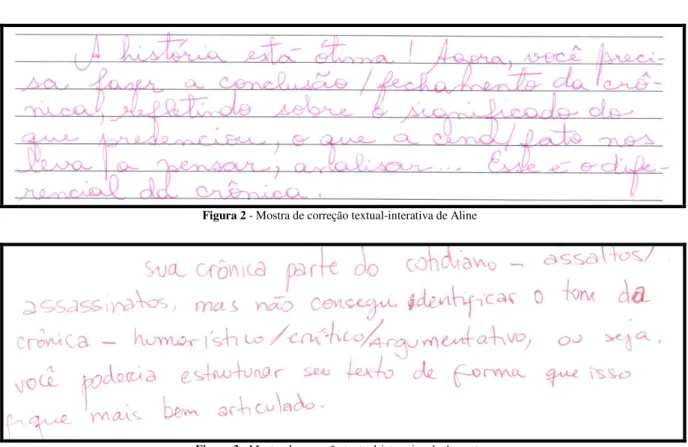 A história está ótima! Agora, você preci-
sa fazer a conclusão/fechamento da crô-
nica, refletindo sobre o significado do
que presenciou, o que a cena/fato nos
leva a pensar, analisar... Este é o dife-
rencial da crônica.
Figura 2 - Mostra de correção textual-interativa de Aline
Sua crônica parte do cotidiano – assaltos/
assassinatos, mas não consegui identificar o tom da
crônica – humorístico/crítico/Argumentativo, ou seja,
você poderia estruturar seu texto de forma que isso
fique mais bem articulado.